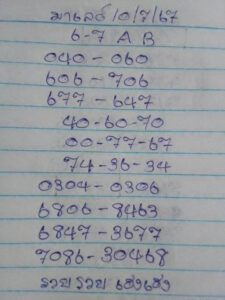 มาเลย์ 10/7/67
6-7 A B
040 - 060
606 - 706
677 - 647
40-60-70
00-77-67
74-36-34
0304-0306
6806-8463
6847-3677
7086-30468
รวย รวย เฮงเฮง